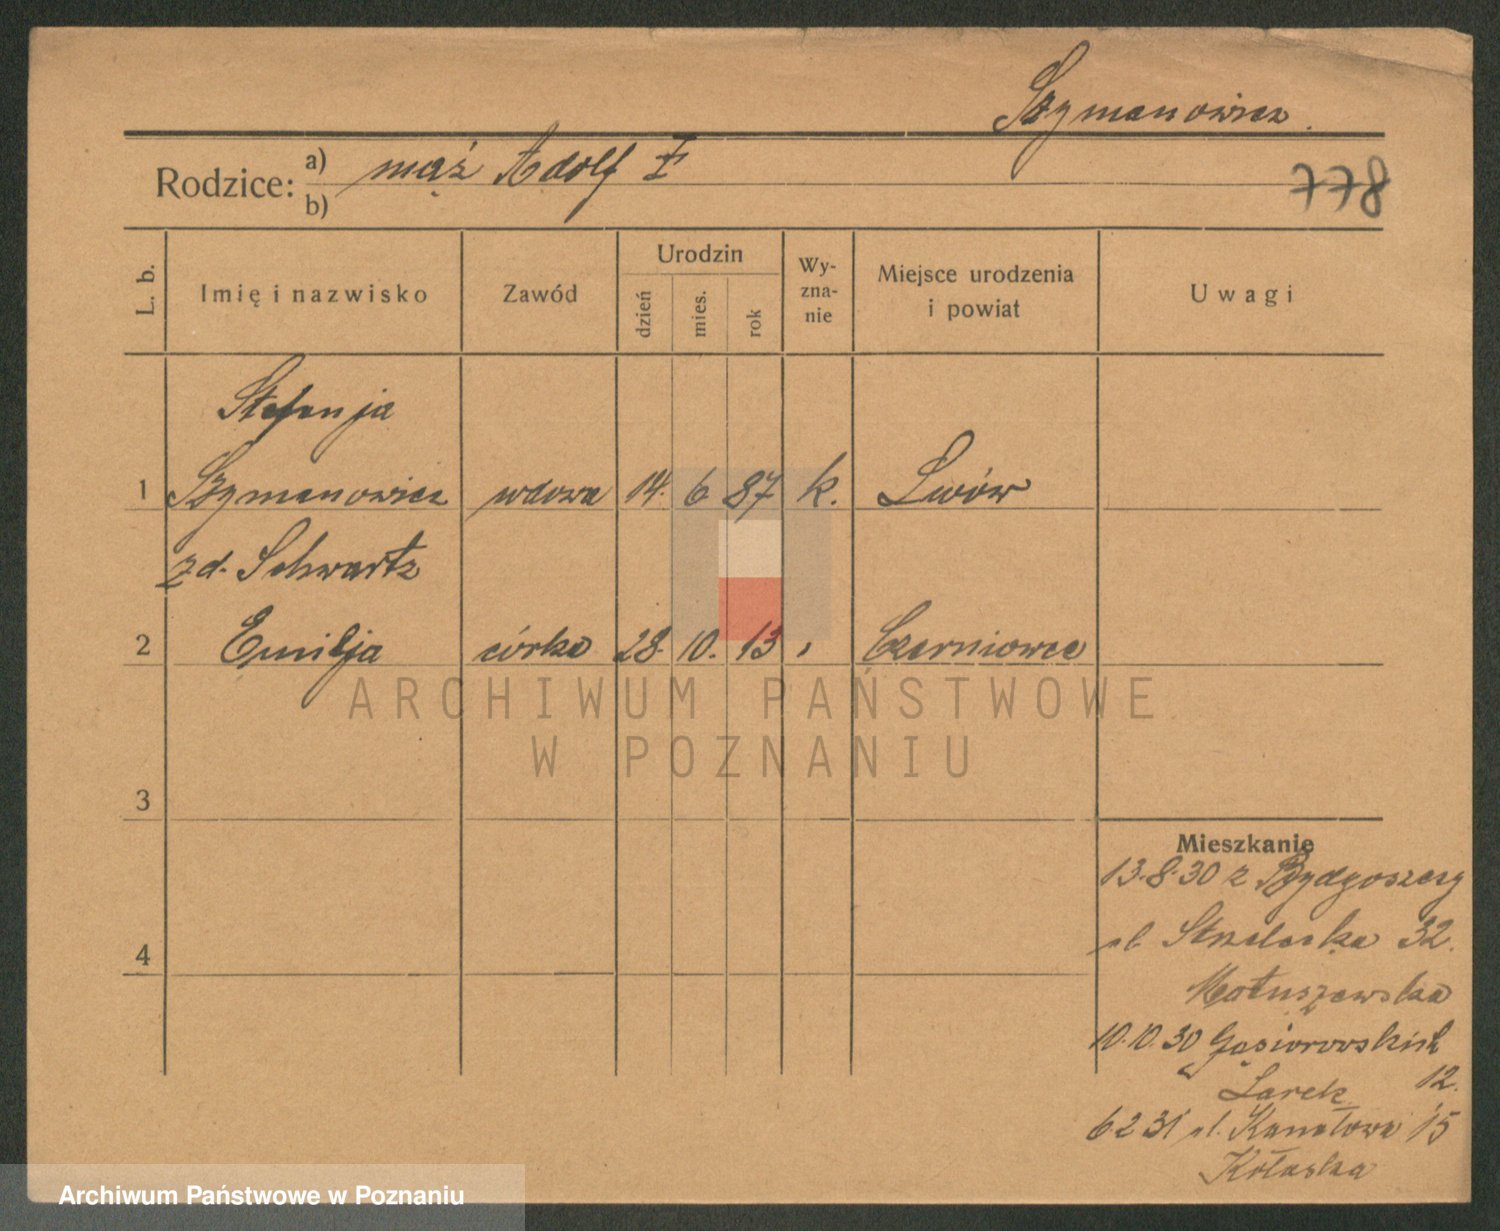 Szymanowicz
Rodzice: a) mąż Adolf †
b)
778
L. b. Imię i nazwisko Zawód Urodzin dzień mies. rok Wy-zna-nie Miejsce urodzenia i powiat Uwagi
Stefanja
1 Szymanowicz wdowa 14. 6 87 k. Lwów
zd. Schwartz
2 Emilja córka 28. 10. 13 Czerniowce
3
4
Mieszkanie
13.8.30 z Bydgoszczy
ul. Strzelecka 32.
Matuszewska
10.10.30 Gąsiorowskich
12.
6 2 31 ul. Kanałowa 15
ARCHIWUM PAŃSTWOWE
W POZNANIU
Archiwum Państwowe w Poznaniu